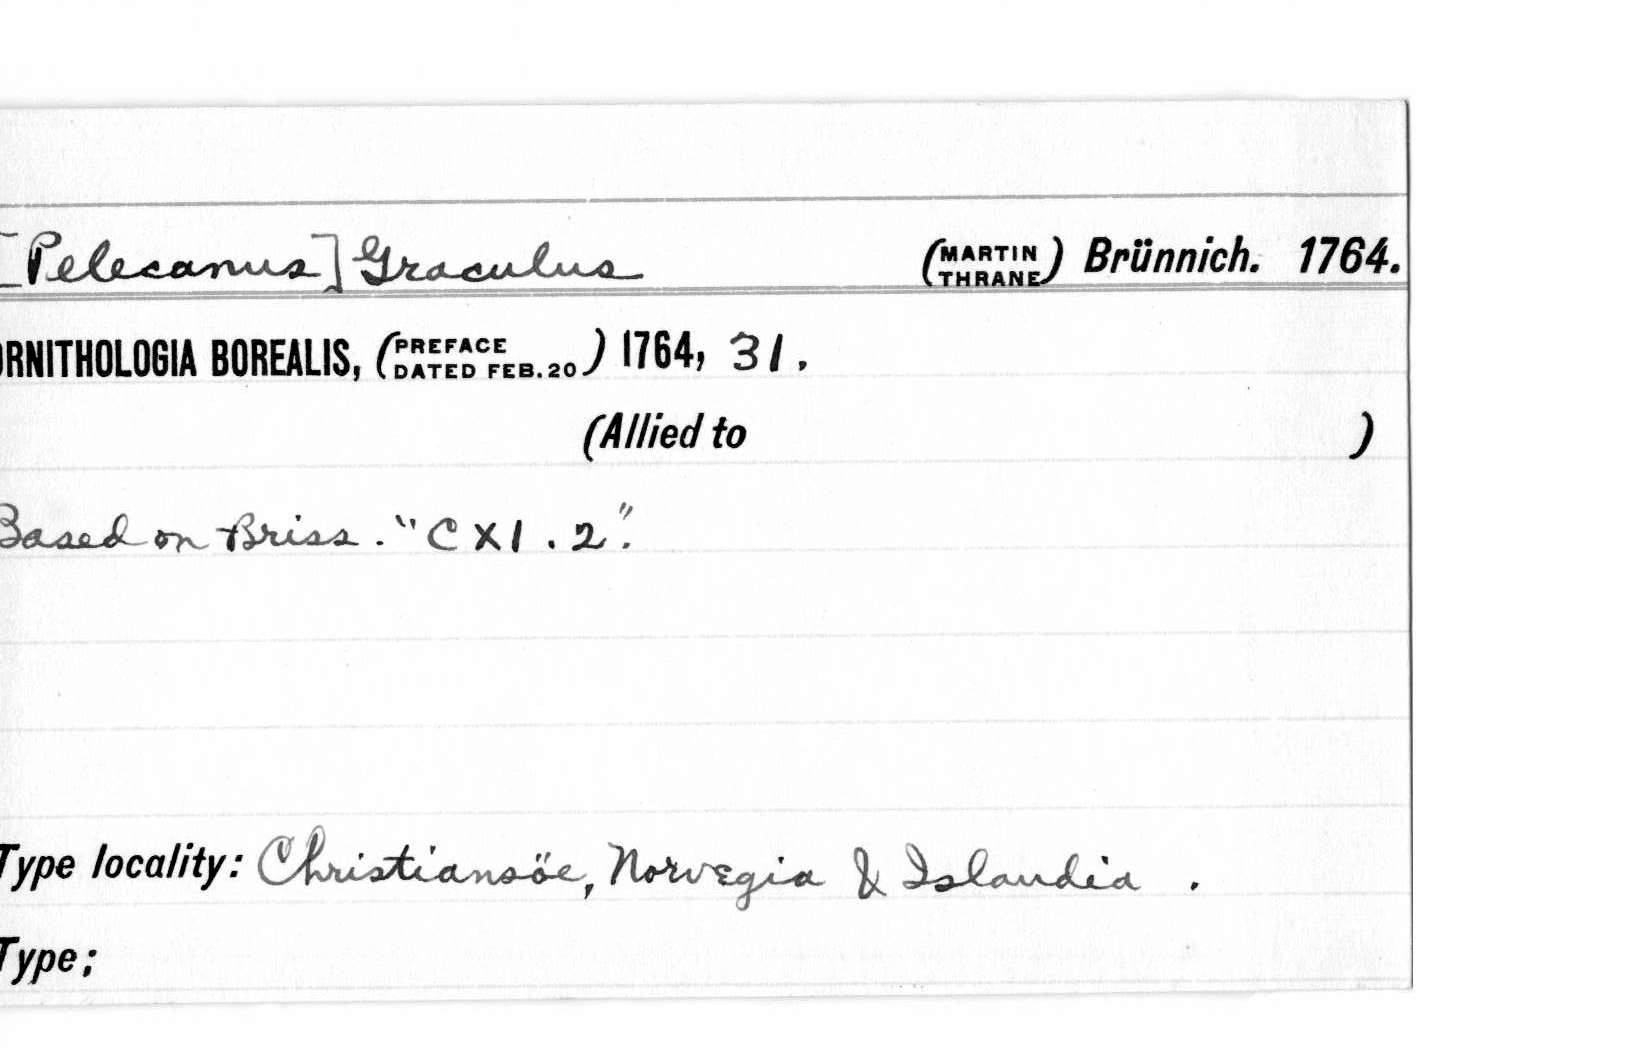 [Pelecanus] Graculus (MARTIN THRANE) Brünnich. 1764.
ORNITHOLOGIA BOREALIS, (PREFACE DATED FEB. 20) 1764, 31.
(Allied to )
Based on Briss. "CXI. 2".
Type locality: Christiansöe, Norvegia & Islandia.
Type;